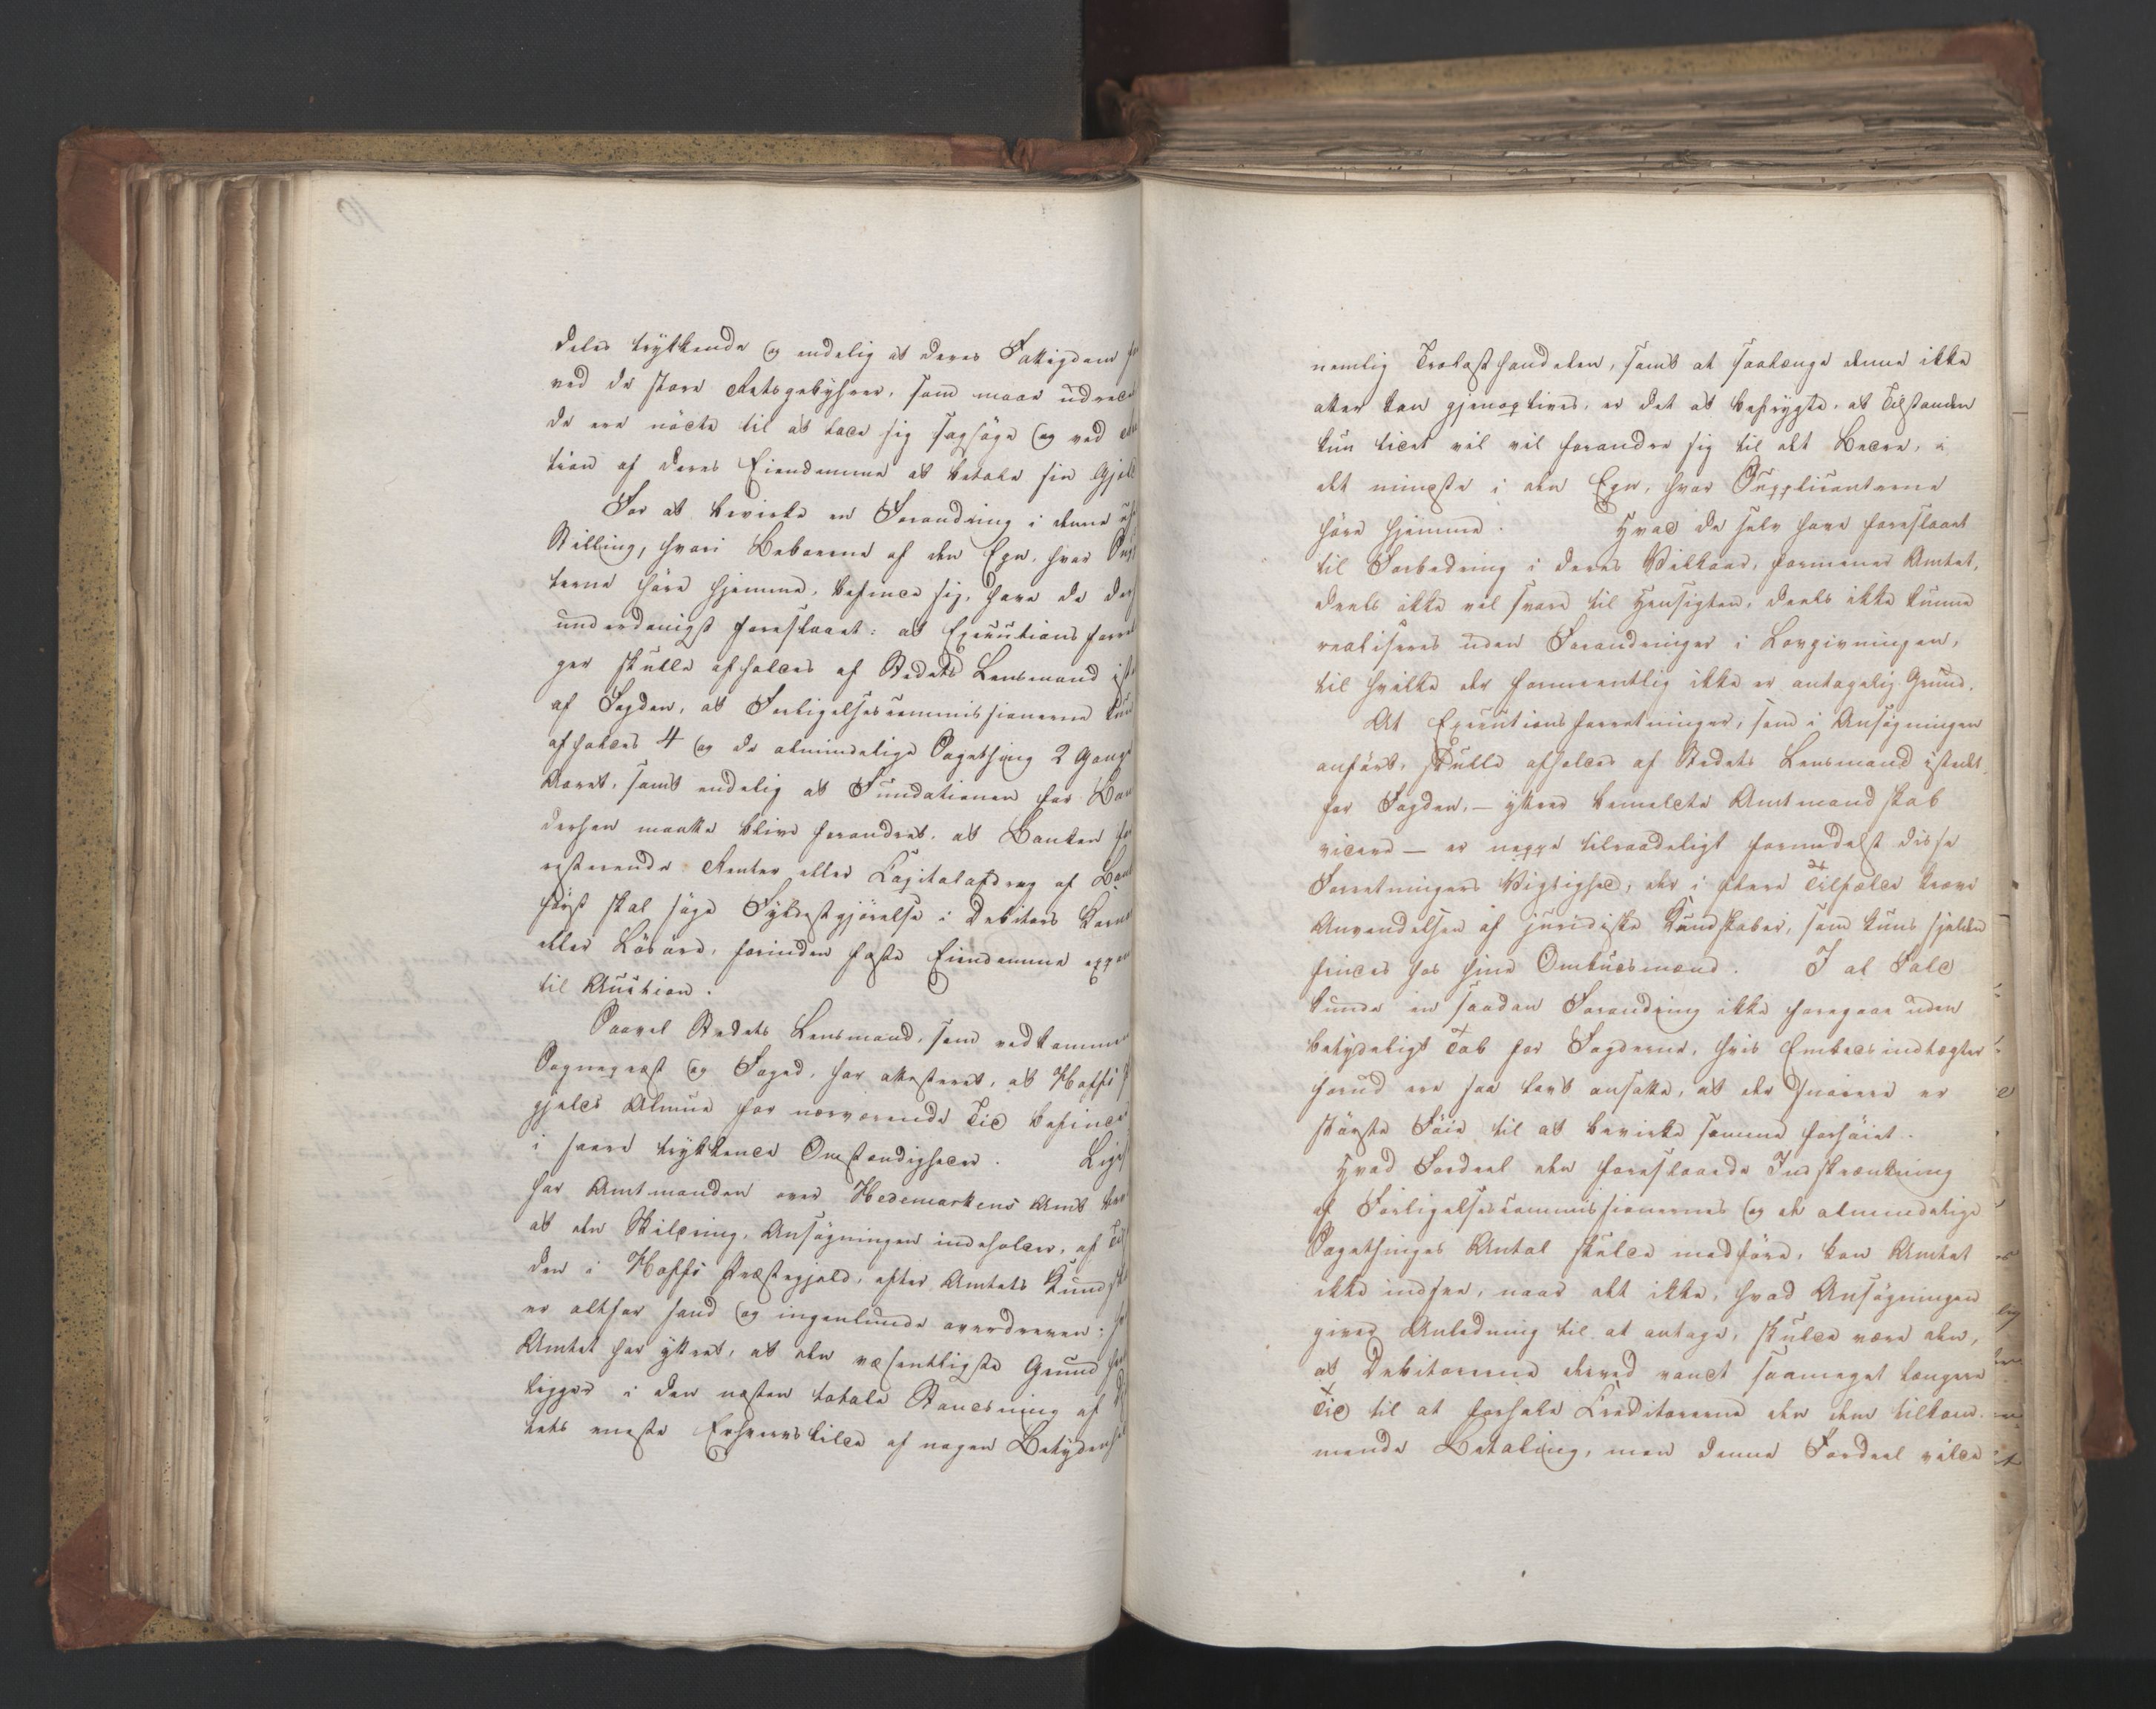 deles trykkende og endelig at deres Fattigdom
ved de store Retsgebyhrer, som maae udrede
de ere nödte til at lade sig sagsöge og ved
tion af deres Eiendomme at betale sin Gjeld
For at bevirke en Forandring i denne
Stilling, hvori Beboerne af den Egn, hvor
terne höre hjemme, befinde sig, have de
underdanigst foreslaaet: at Executionsforret
ger skulle afholdes af Stedets Lensmand
af Fogden, at Forligelsescommissionerne kun
afholdes 4 og de almindelige Sagething 2 Gange
Aaret, samt endelig at Fundationen for
derhen maatte blive forandret, at Banken
resterende Renter eller Capitalafdrag af
först skal söge Fyldestgjörelse i Debitors
eller Lösöre, forinden faste Eiendomme
til Auction.
Saavel Stedets Lensmand, som vedkommen
Sognepræst og Foged, har attesteret, at Hoffs
gjelds Almue for nærværende Tid befinder
i saare trykkende Omstændigheder.
har Amtmanden over Hedemarkens Amt
at den Skildring, Ansögningen indeholder, af
den i Hoffs Præstegjeld, efter Amtets Kundsk
er altfor sand og ingenlunde overdreven;
Amtet har yttret, at den væsentligste Grund
ligger i den næsten totale Standsning af
tets eneste Erhvervskilde af nogen Betydenhed
nemlig Trælasthandelen, samt at saalænge denne ikke
atter kan gjenoplives, er det at befrygte, at Tilstanden
kun lidet vil forandre sig til det Bedre, i
det mindste i den Egn, hvor Supplicanterne
höre hjemme. Hvad de selv have foreslaaet
til Forbedring i deres Vilkaar, formener Amtet,
deels ikke vil svare til Hensigten, deels ikke kunne
realiseres uden Forandringer i Lovgivningen,
til hvilke der formeentlig ikke er antagelig Grund.
At Executionsforretninger, som i Ansögningen
anfört, skulle afholdes af Stedets Lensmand istedet
for Fogden, — yttrer bemeldte Amtmandskab
videre — er neppe tilraadeligt formedelst disse
Forretningers Vigtighed, der i flere Tilfælde kræve
Anvendelsen af juridiske Kundskaber, som kuns sjelden
findes hos hine Ombudsmænd. I al Fald
kunde en saadan Forandring ikke foregaae uden
betydeligt Tab for Fogderne, hvis Embedsindtægter
forud ere saa lavt ansatte, at der snarere er
störste Föie til at bevirke samme forhöiet.
Hvad Fordeel den foreslaaede Indskrænkning
af Forligelsescommissionernes og de almindelige
Sagethinges Antal skulde medföre, kan Amtet
ikke indsee, naar det ikke, hvad Ansögningen
giver Anledning til at antage, skulde være den,
at Debitorerne derved vandt saameget længere
Tid til at forhale Creditorerne den dem tilkom-
mende Betaling, men denne Fordeel vilde